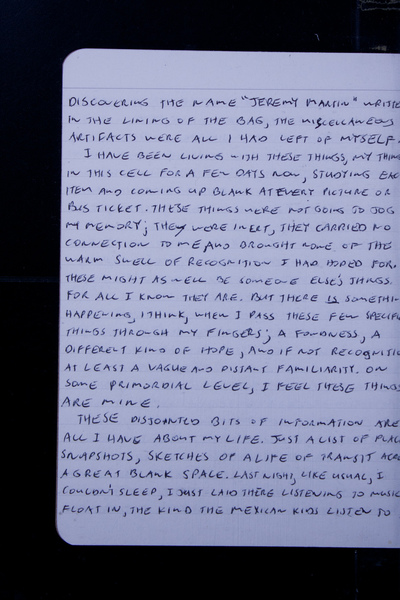 DISCOVERING THE NAME "JEREMY MARTIN" WRITTE
IN THE LINING OF THE BAG, THE MISCELLANEOUS
ARTIFACTS WERE ALL I HAD LEFT OF MYSELF.
I HAVE BEEN LIVING WITH THESE THINGS, MY THING
IN THIS CELL FOR A FEW DAYS NOW, STUDYING EAC
ITEM AND COMING UP BLANK AT EVERY PICTURE OR
BUS TICKET. THESE THINGS WERE NOT GOING TO JOG
MY MEMORY; THEY WERE INERT, THEY CARRIED NO
CONNECTION TO ME, AND BROUGHT NONE OF THE
WARM SWELL OF RECOGNITION I HAD HOPED FOR.
THESE MIGHT AS WELL BE SOMEONE ELSE'S THINGS.
FOR ALL I KNOW THEY ARE. BUT THERE IS SOMETHIN
HAPPENING, I THINK, WHEN I PASS THESE FEW SPECIFI
THINGS THROUGH MY FINGERS; A FONDNESS, A
DIFFERENT KIND OF HOPE, AND IF NOT RECOGNITIO
AT LEAST A VAGUE AND DISTANT FAMILIARITY. ON
SOME PRIMORDIAL LEVEL, I FEEL THESE THINGS
ARE MINE.
THESE DISJOINTED BITS OF INFORMATION ARE
ALL I HAVE ABOUT MY LIFE. JUST A LIST OF PLAC
SNAPSHOTS, SKETCHES OF A LIFE OF TRANSIT ACRO
A GREAT BLANK SPACE. LAST NIGHT, LIKE USUAL, I
COULDN'T SLEEP, I JUST LAID THERE LISTENING TO MUSIC
FLOAT IN, THE KIND THE MEXICAN KIDS LISTEN TO